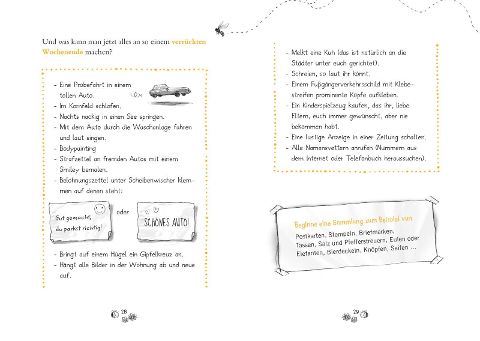 Und was kann man jetzt alles an so einem verrückten
Wochenende machen?
- Eine Probefahrt in einem
tollen Auto.
- Im Kornfeld schlafen.
- Nachts nackig in einen See springen.
- Mit dem Auto durch die Waschanlage fahren
und laut singen.
- Bodypainting
- Strafzettel an fremden Autos mit einem
Smiley bemalen.
- Belohnungszettel unter Scheibenwischer klem-
men auf denen steht:
Gut gemacht,
du parkst richtig!
oder
SCHÖNES AUTO!
- Bringt auf einem Hügel ein Gipfelkreuz an.
- Hängt alle Bilder in der Wohnung ab und neue
auf.
28
- Melkt eine Kuh (das ist natürlich an die
Städter unter euch gerichtet).
- Schreien, so laut ihr könnt.
- Einem Fußgängerverkehrsschild mit Klebe-
streifen prominente Köpfe aufkleben.
- Ein Kinderspielzeug kaufen, das ihr, liebe
Eltern, euch immer gewünscht, aber nie
bekommen habt.
- Eine lustige Anzeige in einer Zeitung schalten.
- Alle Namensvettern anrufen (Nummern aus
dem Internet oder Telefonbuch heraussuchen).
Beginne eine Sammlung zum Beispiel von
Postkarten, Stempeln, Briefmarken,
Tassen, Salz und Pfefferstreuern, Eulen oder
Elefanten, Bierdeckeln, Knöpfen, Seifen ...
29